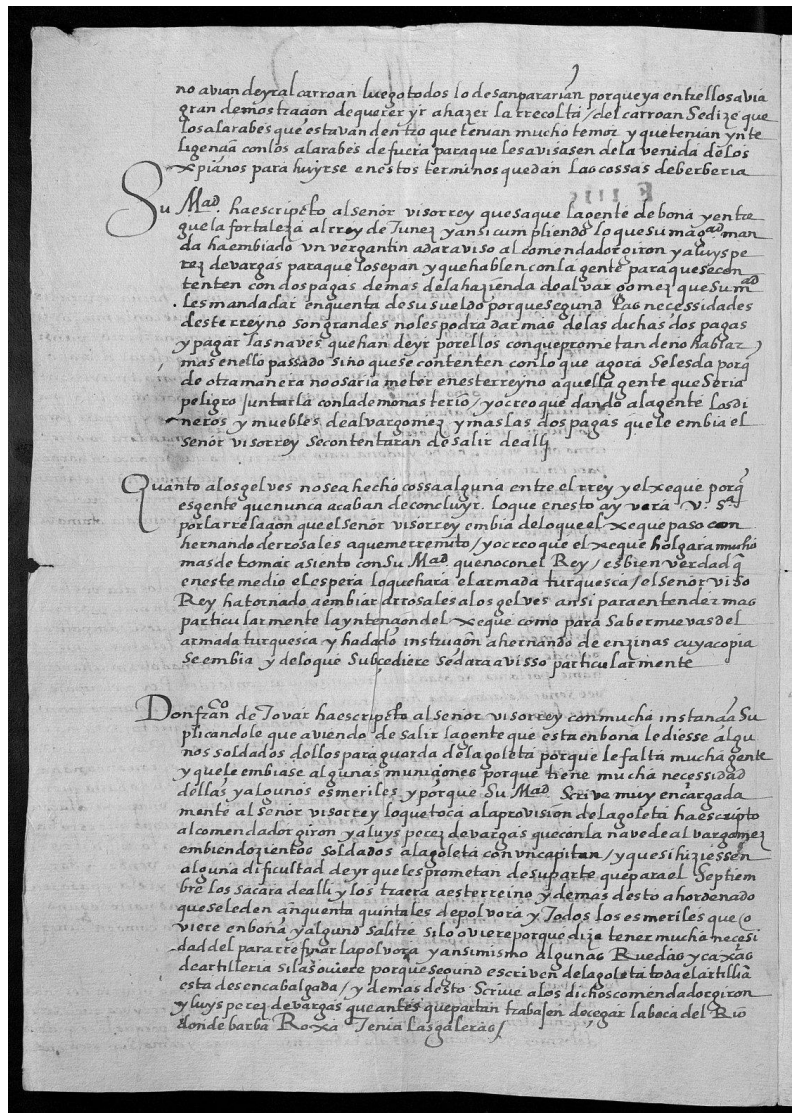 no avian de yr al carroan luego todos lo desanpararian porque ya entre ellos avia
gran demostracion de querer yr a hazer la rrecolta / del carroan se dize que
los alarabes que estavan dentro que tenian mucho temor y que tenian ynte
ligencia con los alarabes de fuera para que les avisasen de la venida de los
xpianos para huyrse en estos terminos quedan las cossas de berberia
Su Mad. ha escripto al señor visorrey que saque la gente de bona y entre
gue la fortaleza al rrey de Tunez y ansi cumpliendo lo que su magad man
da ha embiado un vergantin a dar aviso al comendador giron y a luys pe
rez de vargas para que lo sepan y que hablen con la gente para que se con
tenten con dos pagas demas de la hazienda de alvar gomez que su mad
les manda dar en quenta de su sueldo porque segund las necessidades
deste rreyno son grandes no les podra dar mas de las dichas dos pagas
y pagar las naves que han de yr por ellos con que prometan de no hablar
mas en ello passado sino que se contenten con lo que agora se les da porq
de otra manera no osaria meter en este rreyno aquella gente que seria
peligro juntarla con la de monasterio / yo creo que dando a la gente los di
neros y muebles de alvar gomez y mas las dos pagas que le embia el
señor visorrey se contentaran de salir de alli
Quanto a los gelves no sea hecho cossa alguna entre el rrey y el xeque porq
es gente que nunca acaban de concluyr. lo que en esto ay vera v. sa
por la rrelacion que el señor visorrey embia de lo que el xeque paso con
hernando de rrosales a que me rremito / yo creo que el xeque holgara mucho
mas de tomar asiento con su Mad. que no con el Rey / es bien verdad q
en este medio el espera lo que hara el armada turquesca / el señor viso
Rey ha tornado a embiar a rrosales a los gelves ansi para entender mas
particularmente la yntencion del xeque como para saber nuevas del
armada turquesca y ha dado instrucion a hernando de enzinas cuya copia
se embia y de lo que subcediere se dara avisso particularmente
Don franco de Tovar ha escripto al señor visorrey con mucha instancia su
plicandole que aviendo de salir la gente que esta en bona le diesse algu
nos soldados dellos para guarda de la goleta porque le falta mucha gente
y que le embiase algunas municiones porque tiene mucha necessidad
dellas y algunos esmeriles y porque su Mad. scrive muy encargada
mente al señor visorrey lo que toca a la provision de la goleta ha escripto
al comendador giron y a luys perez de vargas que con la nave de alvar gomez
embien dozientos soldados a la goleta con un capitan / y que si hiziessen
alguna dificultad de yr que les prometan de su parte que para el septiem
bre los sacara de alli y los traera a este rreino y demas desto a hordenado
que se le den cinquenta quintales de polvora y todos los esmeriles que o
viere en bona y algund salitre si lo oviere porque dize tener mucha necesi
dad del para rrefinar la polvora y ansimismo algunas Ruedas y caxas
de artilleria si las oviere porque segund escriven de la goleta toda el artillia
esta desencabalgada / y demas desto scrive a los dichos comendador giron
y luys perez de vargas que antes que partan trabajen de cegar la boca del Rio
donde barba Roxa tenia las galeras /